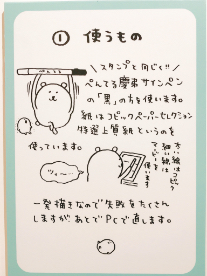 ① 使うもの
ぺんてる
＼スタンプと同じく／
ぺんてる慶弔サインペン
の「黒」の方を使います。
紙はコピックペーパーセレクション
特選上質紙というのを
使っています。
太い線はコピック
細い線は
マービーを
使います
ツィ〜〜
一発描きなので失敗をたくさん
しますがあとでPCで直します。